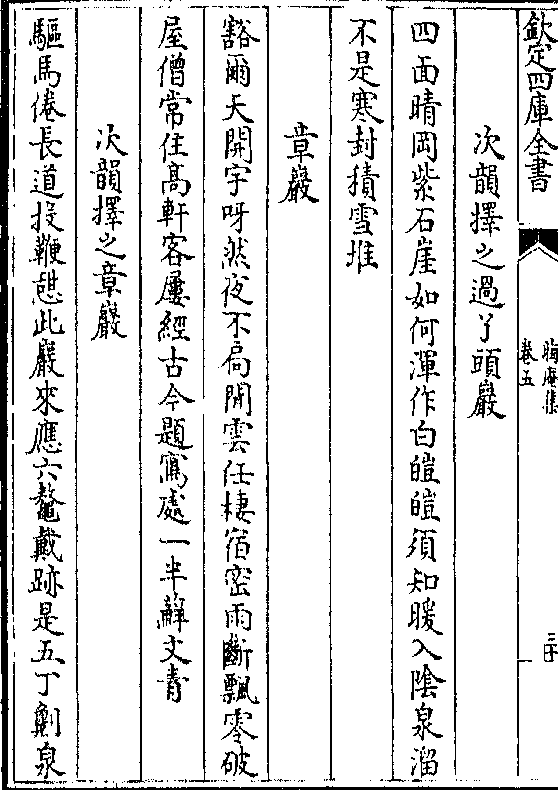 欽定四庫全書
晦庵集
卷五
三十一
次韻擇之過丫頭巖
四面晴岡紫石崖如何渾作白皚皚須知暖入隂泉溜
不是寒封積雪堆
章巖
豁爾天開宇呀然夜不扃閒雲任棲宿密雨斷飄零破
屋僧常住髙軒客屢經古今題寫處一半蘚文青
次韻擇之章巖
驅馬倦長道投鞭憇此巖來應六鰲戴跡是五丁劖泉